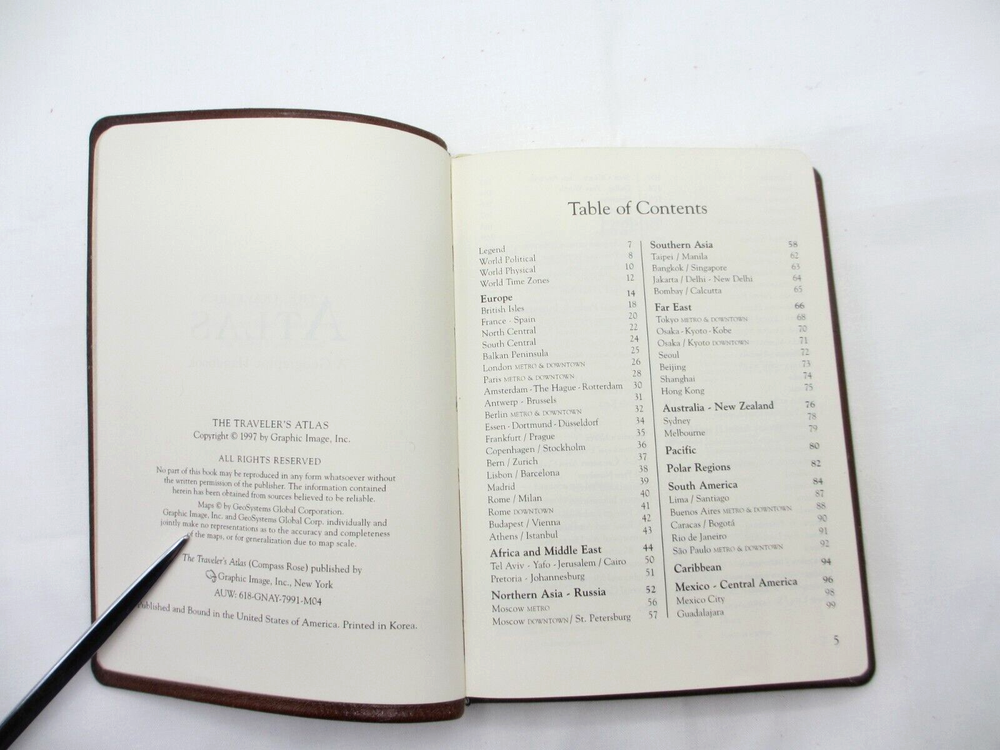 THE TRAVELER'S ATLAS
Copyright © 1997 by Graphic Image, Inc.
ALL RIGHTS RESERVED
No part of this book may be reproduced in any form whatsoever without
the written permission of the publisher. The information contained
herein has been obtained from sources believed to be reliable.
Maps © by GeoSystems Global Corporation.
Graphic Image, Inc. and GeoSystems Global Corp. individually and
jointly make no representations as to the accuracy and completeness
of the maps, or for generalization due to map scale.
The Traveler's Atlas (Compass Rose) published by
Graphic Image, Inc., New York
AUW: 618-GNAY-7991-M04
Published and Bound in the United States of America. Printed in Korea.
Table of Contents
Legend 7
World Political 8
World Physical 10
World Time Zones 12
Europe 14
British Isles 18
France - Spain 20
North Central 22
South Central 24
Balkan Peninsula 25
London METRO & DOWNTOWN 26
Paris METRO & DOWNTOWN 28
Amsterdam - The Hague - Rotterdam 30
Antwerp - Brussels 31
Berlin METRO & DOWNTOWN 32
Essen - Dortmund - Düsseldorf 34
Frankfurt / Prague 35
Copenhagen / Stockholm 36
Bern / Zurich 37
Lisbon / Barcelona 38
Madrid 39
Rome / Milan 40
Rome DOWNTOWN 41
Budapest / Vienna 42
Athens / Istanbul 43
Africa and Middle East 44
Tel Aviv - Yafo - Jerusalem / Cairo 50
Pretoria - Johannesburg 51
Northern Asia - Russia 52
Moscow METRO 56
Moscow DOWNTOWN / St. Petersburg 57
Southern Asia 58
Taipei / Manila 62
Bangkok / Singapore 63
Jakarta / Delhi - New Delhi 64
Bombay / Calcutta 65
Far East 66
Tokyo METRO & DOWNTOWN 68
Osaka - Kyoto - Kobe 70
Osaka / Kyoto DOWNTOWN 71
Seoul 72
Beijing 73
Shanghai 74
Hong Kong 75
Australia - New Zealand 76
Sydney 78
Melbourne 79
Pacific 80
Polar Regions 82
South America 84
Lima / Santiago 87
Buenos Aires METRO & DOWNTOWN 88
Caracas / Bogotá 90
Rio de Janeiro 91
São Paulo METRO & DOWNTOWN 92
Caribbean 94
Mexico - Central America 96
Mexico City 98
Guadalajara 99
5